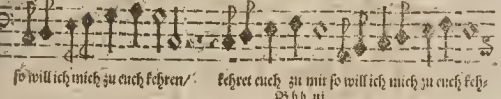 so will ich mich zu euch kehren/ kehret euch zu mir so will ich mich zu euch keh-